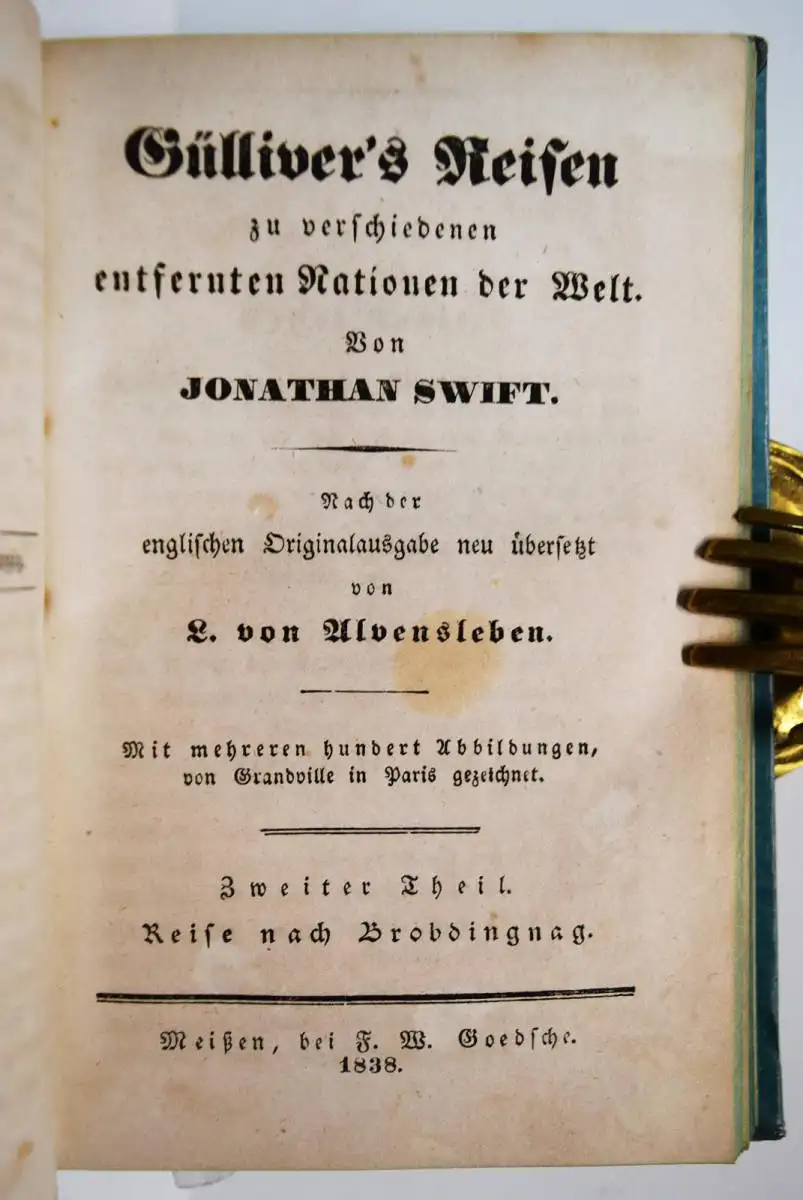 Gülliver's Reisen
zu verschiedenen
entfernten Nationen der Welt.
Von
JONATHAN SWIFT.
Nach der
englischen Originalausgabe neu übersetzt
von
L. von Alvensleben.
Mit mehreren hundert Abbildungen,
von Grandville in Paris gezeichnet.
Zweiter Theil.
Reise nach Brobdingnag.
Meißen, bei F. W. Goedsche.
1838.